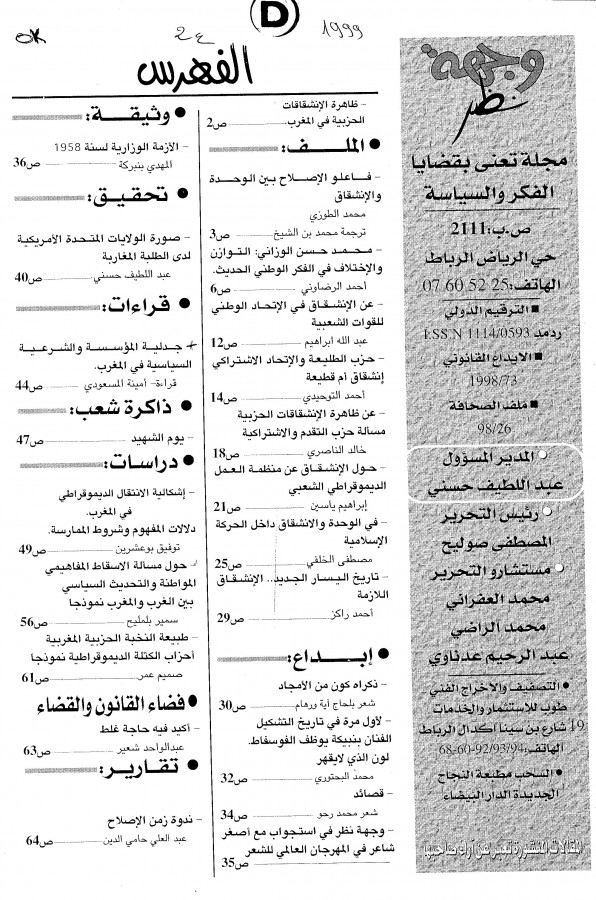 OK
24
D
1999
وجهة
نظر
مجلة تعنى بقضايا
الفكر والسياسة
ص.ب:2111
حي الرياض الرباط
الهاتف:25 52 60 07
■ الترقيم الدولي
ردمد I.SS.N 1114/0593
■ الايداع القانوني
1998/73
■ ملف الصحافة
98/26
● المدير المسؤول
عبد اللطيف حسني
● رئيس التحرير
المصطفى صوليح
● مستشارو التحرير
محمد العفراني
محمد الراضي
عبد الرحيم عدناوي
● التصفيف والاخراج الفني
طوب للاستثمار والخدمات
19 شارع بن سينا أكدال الرباط
الهاتف:94/93/92-60-68
● السحب مطبعة النجاح
الجديدة الدار البيضاء
المقالات المنشورة تعبر عن آراء صاحبها
الفهرس
- ظاهرة الإنشقاقات
الحزبية في المغرب. ص2
● الملف:
- فاعلو الإصلاح بين الوحدة
والإنشقاق
محمد الطوزي
ترجمة محمد بن الشيخ ص3
- محمد حسن الوزاني: التوازن
والإختلاف في الفكر الوطني الحديث.
أحمد الرضاوني ص6
- عن الإنشقاق في الإتحاد الوطني
للقوات الشعبية
عبد الله ابراهيم ص12
- حزب الطليعة والإتحاد الاشتراكي
إنشقاق أم قطيعة
أحمد التوحيدي ص14
- عن ظاهرة الإنشقاقات الحزبية
مسالة حزب التقدم والاشتراكية
خالد الناصري ص18
- حول الإنشقاق عن منظمة العمل
الديموقراطي الشعبي
إبراهيم ياسين ص21
- في الوحدة والانشقاق داخل الحركة
الإسلامية
مصطفى الخلفي ص25
- تاريخ اليسار الجديد.. الإنشقاق
اللازمة
أحمد راكز ص29
● إبداع:
- ذكراه كون من الأمجاد
شعر بلحاج آية ورهام ص30
- لاول مرة في تاريخ التشكيل
الفنان بنبيكة يوظف الفوسفاط.
لون الذي لايقهر
محمد البحتوري ص32
- قصائد
شعر محمد رحو ص34
- وجهة نظر في استجواب مع أصغر
شاعر في المهرجان العالمي للشعر
ص35
● وثيقة:
- الأزمة الوزارية لسنة 1958
المهدي بنبركة ص36
● تحقيق:
- صورة الولايات المتحدة الأمريكية
لدى الطلبة المغاربة
عبد اللطيف حسني ص40
● قراءات:
- جدلية المؤسسة والشرعية
السياسية في المغرب.
قراءة- أمينة المسعودي ص44
● ذاكرة شعب:
- يوم الشهيد ص47
● دراسات:
- إشكالية الانتقال الديموقراطي
في المغرب.
دلالات المفهوم وشروط الممارسة.
توفيق بوعشرين ص49
- حول مسالة الاسقاط المفاهيمي
المواطنة والتحديث السياسي
بين الغرب والمغرب نموذجا
سمير بلمليح ص56
- طبيعة النخبة الحزبية المغربية
أحزاب الكتلة الديموقراطية نموذجا
صميم عمر ص61
● فضاء القانون والقضاء
- أكيد فيه حاجة غلط
عبدالواحد شعير ص63
● تقارير:
- ندوة زمن الإصلاح
عبد العلي حامي الدين ص64